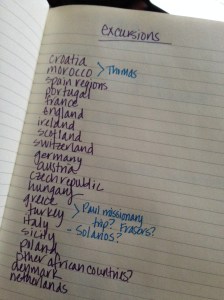 excursions
croatia
morocco > Thomas
spain regions
portugal
france
england
ireland
scotland
switzerland
germany
austria
czech republic
hungary
greece
turkey > Paul missionary
trip? Frasers?
italy - Solarios?
sicily
poland
other african countries?
denmark
netherlands